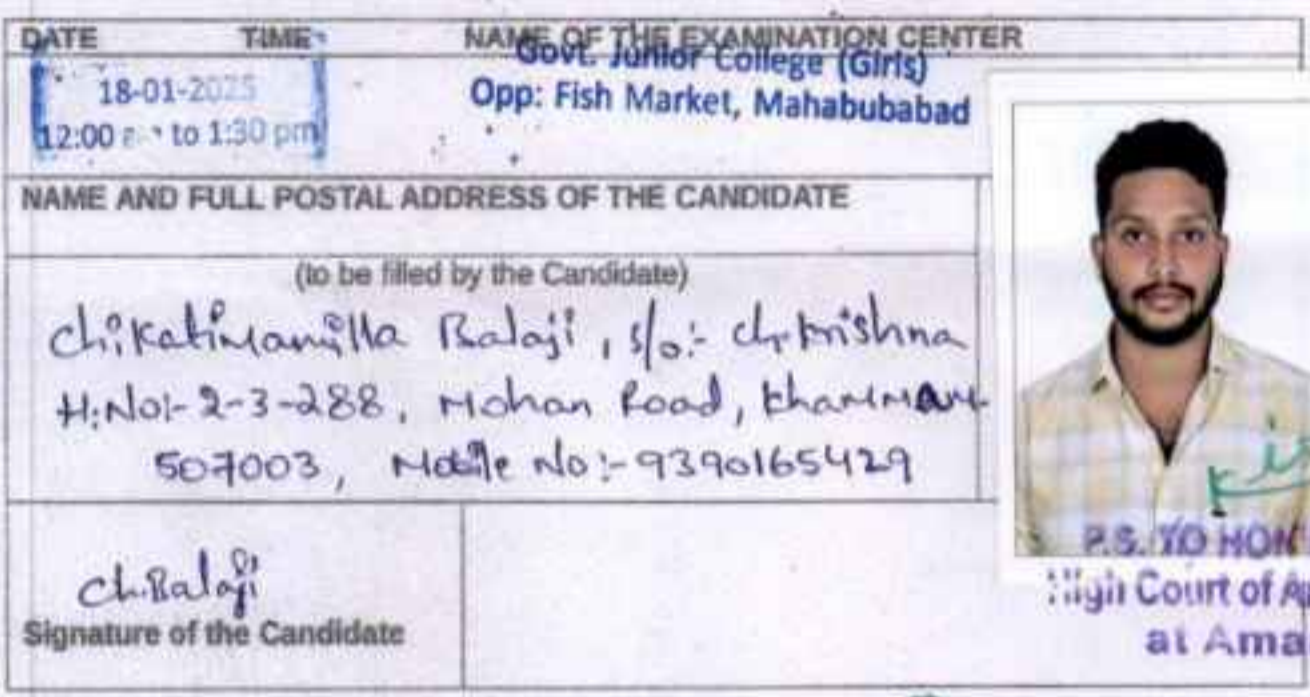 DATE TIME NAME OF THE EXAMINATION CENTER
Govt. Junior College (Girls)
18-01-2025
Opp: Fish Market, Mahabubabad
12:00 to 1:30 pm
NAME AND FULL POSTAL ADDRESS OF THE CANDIDATE
(to be filled by the Candidate)
Chikatimamilla Balaji, s/o:- Ch. Krishna
H.No:- 2-3-288, Mohan Road, Khammam-
507003, Mobile No:- 9390165429
Ch.Balaji
Signature of the Candidate
P.S. TO HON
High Court of A
at Ama